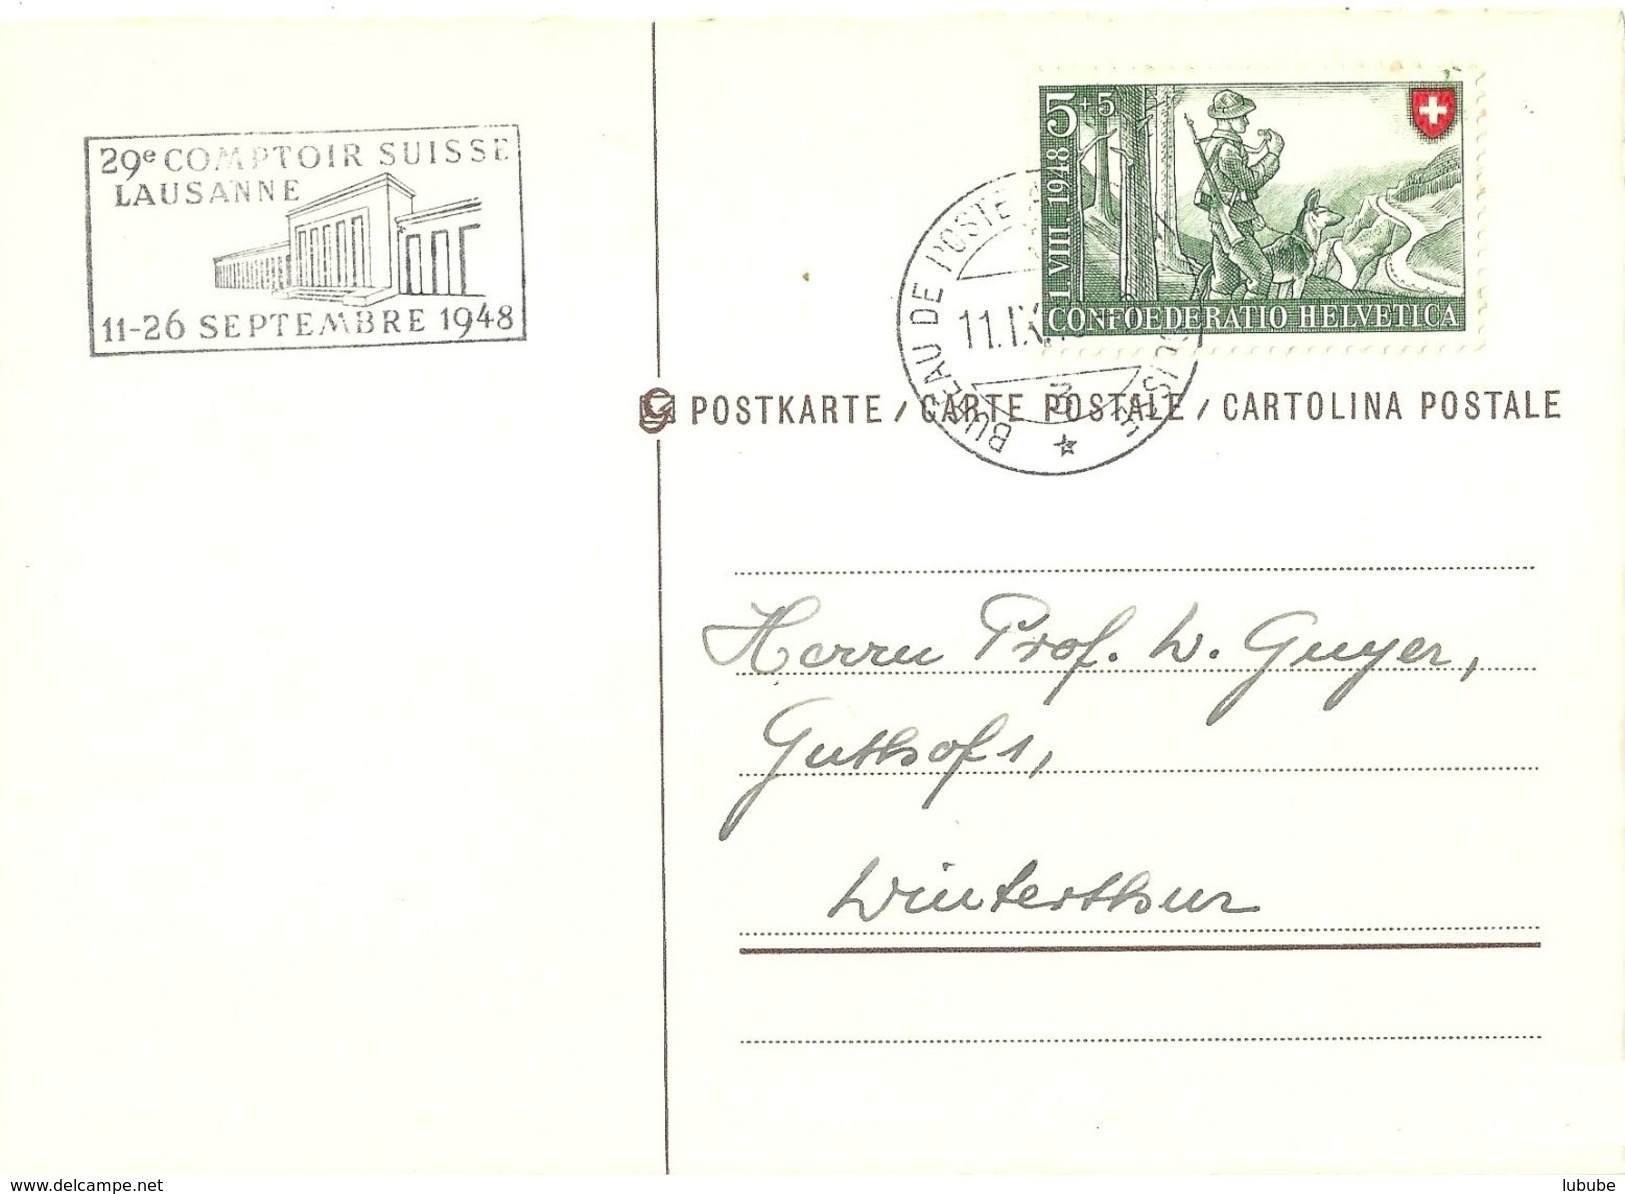 29e COMPTOIR SUISSE
LAUSANNE
11-26 SEPTEMBRE 1948
5+5
I.VIII.1948
CONFOEDERATIO HELVETICA
BUREAU DE POSTE
11.IX.
SUISSE
POSTKARTE / CARTE POSTALE / CARTOLINA POSTALE
Herrn Prof. W. Guyer,
Guthof 1,
Winterthur
www.delcampe.net
lubube